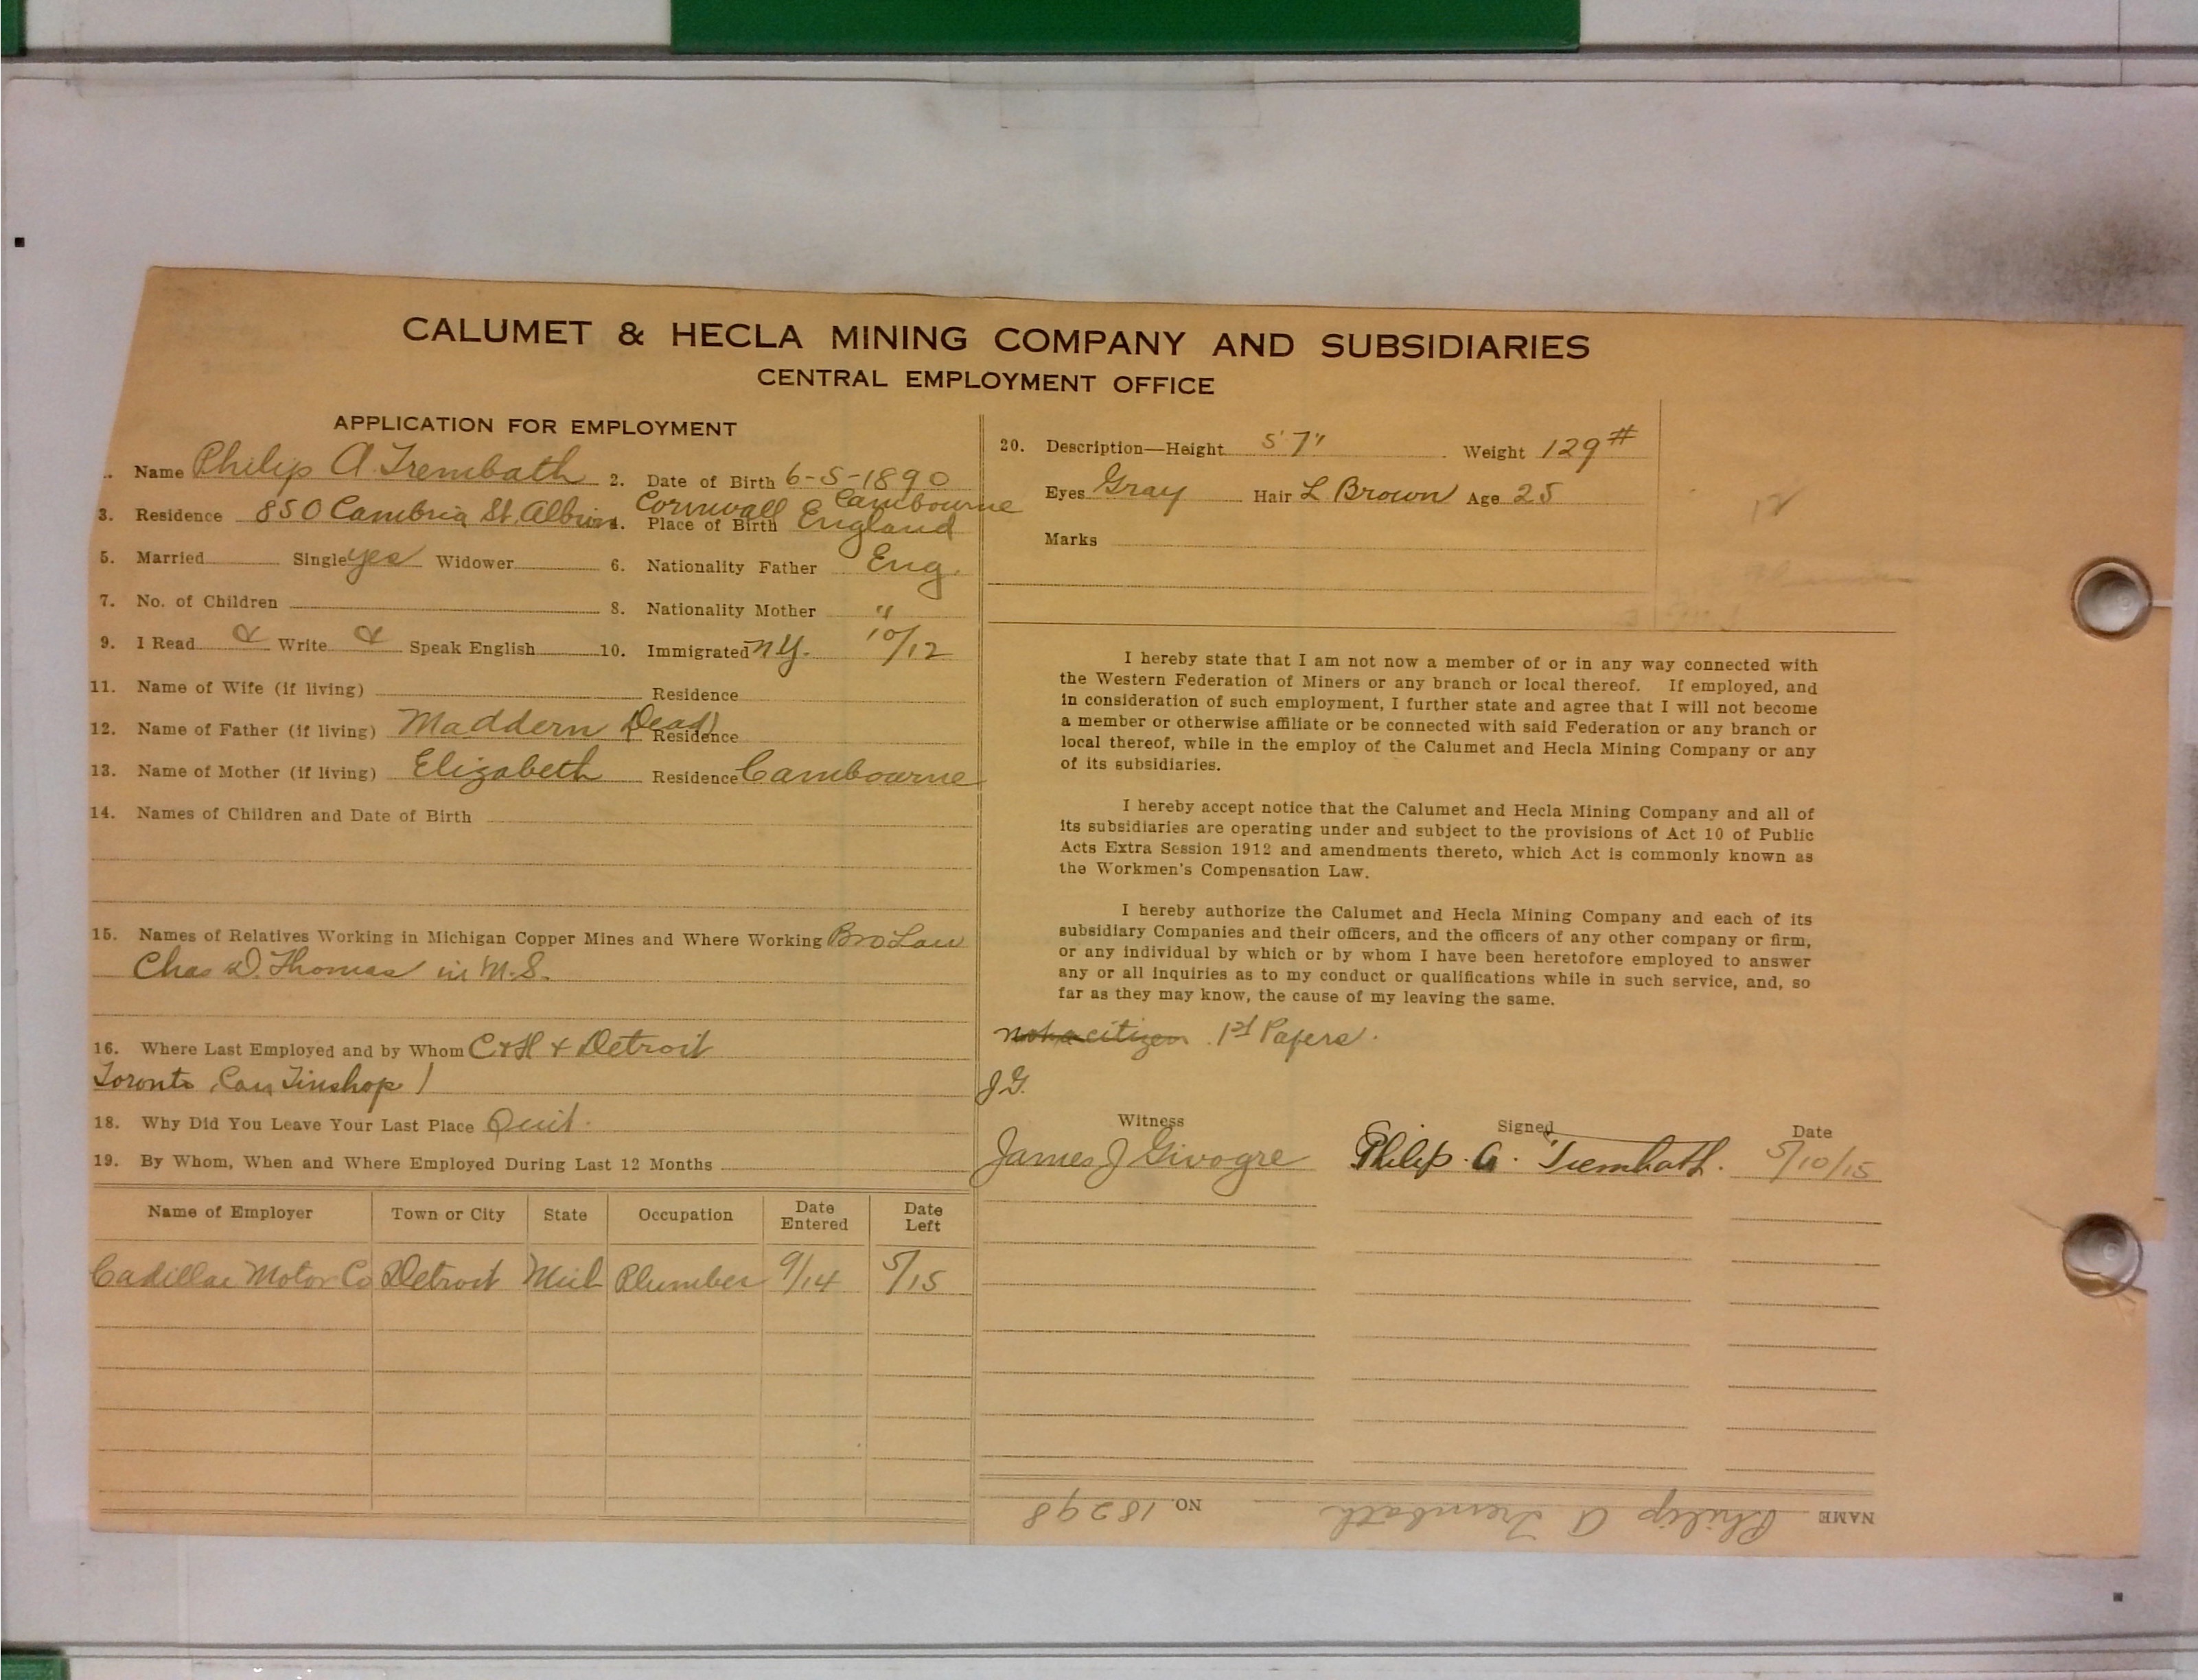 CALUMET & HECLA MINING COMPANY AND SUBSIDIARIES
CENTRAL EMPLOYMENT OFFICE
APPLICATION FOR EMPLOYMENT
Name Philip A Trembath 2. Date of Birth 6-5-1890
3. Residence 850 Cambria St. Albion 4. Place of Birth Cornwall Cambourne England
5. Married Single yes Widower 6. Nationality Father Eng.
7. No. of Children 8. Nationality Mother "
9. I Read & Write & Speak English 10. Immigrated N.Y. 10/12
11. Name of Wife (if living) Residence
12. Name of Father (if living) Maddern (Dead) Residence
13. Name of Mother (if living) Elizabeth Residence Cambourne
14. Names of Children and Date of Birth
15. Names of Relatives Working in Michigan Copper Mines and Where Working Bro Law
Chas D. Thomas in M.S.
16. Where Last Employed and by Whom C & H & Detroit
Toronto, Can, Tinshop
18. Why Did You Leave Your Last Place Quit.
19. By Whom, When and Where Employed During Last 12 Months
Name of Employer Town or City State Occupation Date Entered Date Left
Cadillac Motor Co Detroit Mich Plumber 9/14 5/15
20. Description—Height 5'7" Weight 129#
Eyes Gray Hair L Brown Age 25
Marks
12
I hereby state that I am not now a member of or in any way connected with
the Western Federation of Miners or any branch or local thereof. If employed, and
in consideration of such employment, I further state and agree that I will not become
a member or otherwise affiliate or be connected with said Federation or any branch or
local thereof, while in the employ of the Calumet and Hecla Mining Company or any
of its subsidiaries.
I hereby accept notice that the Calumet and Hecla Mining Company and all of
its subsidiaries are operating under and subject to the provisions of Act 10 of Public
Acts Extra Session 1912 and amendments thereto, which Act is commonly known as
the Workmen's Compensation Law.
I hereby authorize the Calumet and Hecla Mining Company and each of its
subsidiary Companies and their officers, and the officers of any other company or firm,
or any individual by which or by whom I have been heretofore employed to answer
any or all inquiries as to my conduct or qualifications while in such service, and, so
far as they may know, the cause of my leaving the same.
not a citizen 1st Papers.
J.G.
Witness Signed Date
James J Givogre Philip. A. Trembath. 5/10/15
NAME Philip A Trembath NO. 18298